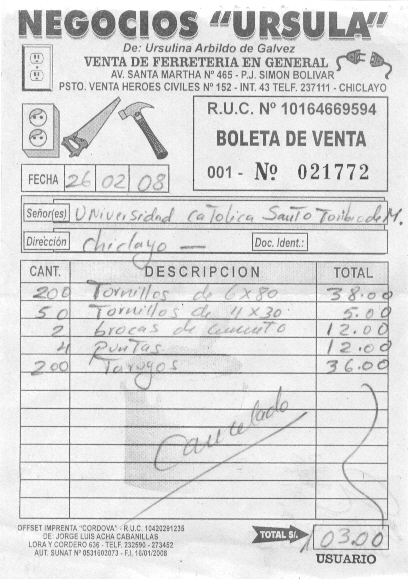 NEGOCIOS "URSULA"
De: Ursulina Arbildo de Galvez
VENTA DE FERRETERIA EN GENERAL
AV. SANTA MARTHA Nº 465 - P.J. SIMON BOLIVAR
PSTO. VENTA HEROES CIVILES Nº 152 - INT. 43 TELF. 237111 - CHICLAYO
R.U.C. Nº 10164669594
BOLETA DE VENTA
001 - Nº 021772
FECHA 26 02 08
Señor(es) Universidad Catolica Santo Toribio de M.
Dirección Chiclayo — Doc. Ident.:
CANT. DESCRIPCION TOTAL
200 Tornillos de 6x80 38.00
50 Tornillos de 4x30 5.00
2 brocas de cemento 12.00
4 puntas 12.00
200 Tarugos 36.00
Cancelado
OFFSET IMPRENTA "CORDOVA" - R.U.C. 10420291235
DE: JORGE LUIS ACHA CABANILLAS
LORA Y CORDERO 636 - TELF. 232590 - 273452
AUT. SUNAT Nº 0531603073 - F.I. 16/01/2008
TOTAL S/. 103.00
USUARIO